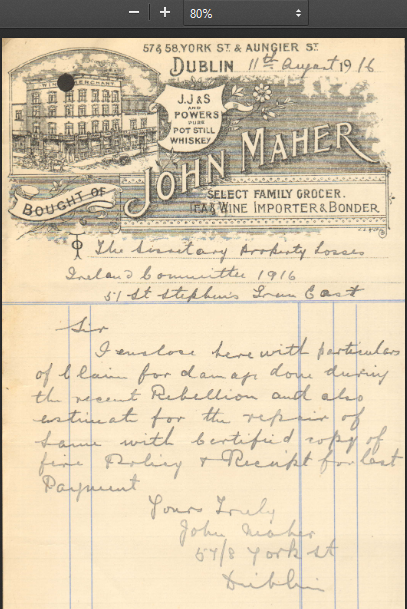 80%
57 & 58, YORK ST. & AUNGIER ST.
DUBLIN 11th August 1916
WINE MERCHANT
J.J & S
AND
POWERS
PURE
POT STILL
WHISKEY
JOHN MAHER
BOUGHT OF
SELECT FAMILY GROCER.
TEA & WINE IMPORTER & BONDER
To The Secretary Property Losses
Ireland Committee 1916
51 St Stephens Green East
Sir
I enclose here with particulars
of Claim for damage done during
the recent Rebellion and also
estimate for the repair of
same with Certified copy of
fire Policy & Receipt for last
Payment
Yours Truly
John Maher
57/8 York St
Dublin